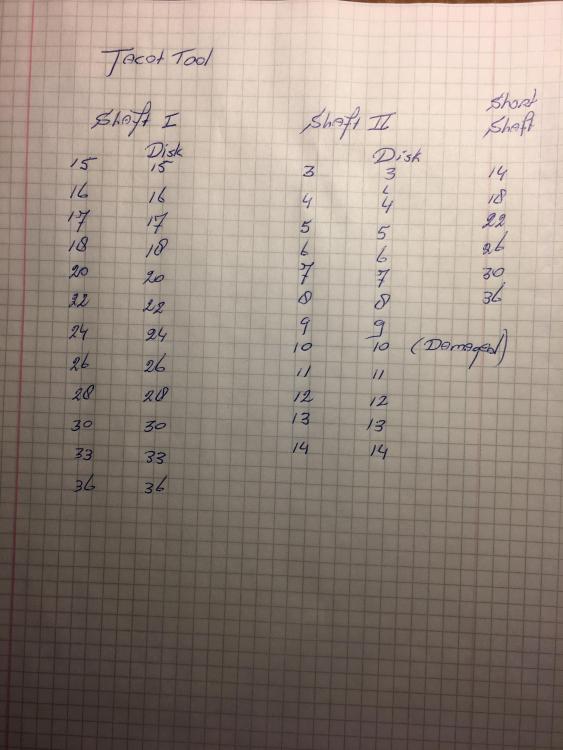 Jacot Tool
Short
Shaft I Shaft II Shaft
Disk Disk
15 15 3 3 14
16 16 4 4 18
17 17 5 5 22
18 18 6 6 26
20 20 7 7 30
22 22 8 8 36
24 24 9 9
26 26 10 10 (Damaged)
28 28 11 11
30 30 12 12
33 33 13 13
36 36 14 14